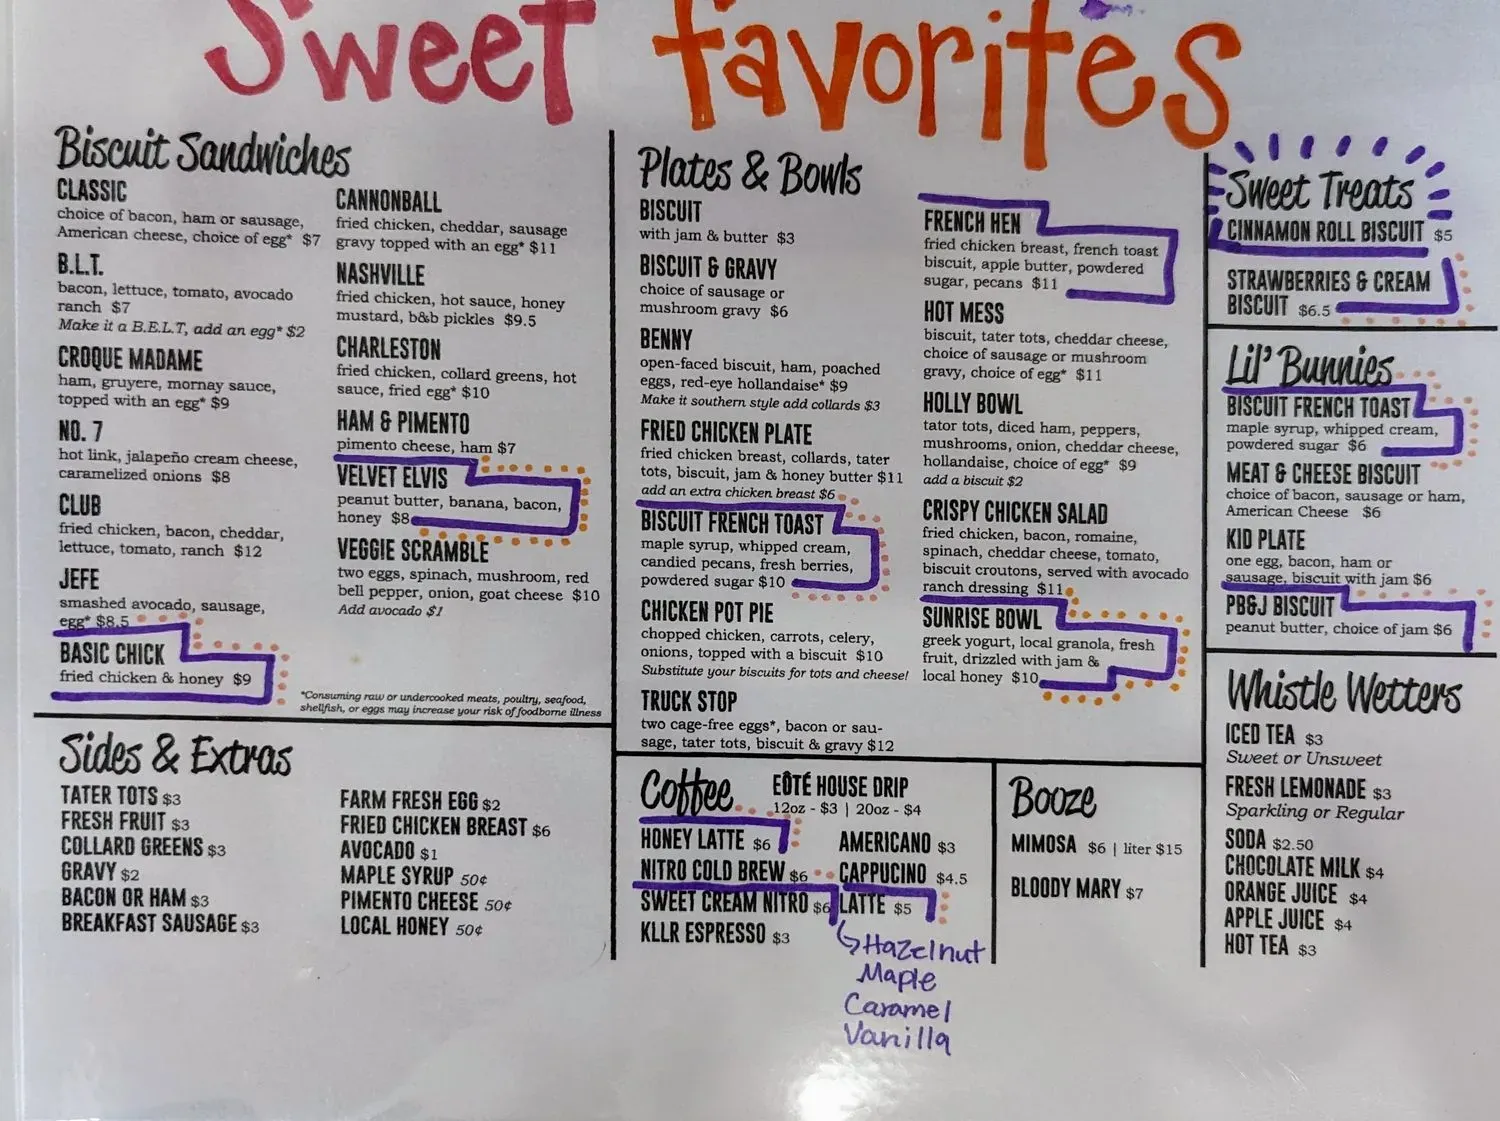 Sweet favorites
Biscuit Sandwiches
CLASSIC
choice of bacon, ham or sausage,
American cheese, choice of egg* $7
B.L.T.
bacon, lettuce, tomato, avocado
ranch $7
Make it a B.E.L.T, add an egg* $2
CROQUE MADAME
ham, gruyere, mornay sauce,
topped with an egg* $9
NO. 7
hot link, jalapeño cream cheese,
caramelized onions $8
CLUB
fried chicken, bacon, cheddar,
lettuce, tomato, ranch $12
JEFE
smashed avocado, sausage,
egg* $8.5
BASIC CHICK
fried chicken & honey $9
CANNONBALL
fried chicken, cheddar, sausage
gravy topped with an egg* $11
NASHVILLE
fried chicken, hot sauce, honey
mustard, b&b pickles $9.5
CHARLESTON
fried chicken, collard greens, hot
sauce, fried egg* $10
HAM & PIMENTO
pimento cheese, ham $7
VELVET ELVIS
peanut butter, banana, bacon,
honey $8
VEGGIE SCRAMBLE
two eggs, spinach, mushroom, red
bell pepper, onion, goat cheese $10
Add avocado $1
*Consuming raw or undercooked meats, poultry, seafood,
shellfish, or eggs may increase your risk of foodborne illness
Plates & Bowls
BISCUIT
with jam & butter $3
BISCUIT & GRAVY
choice of sausage or
mushroom gravy $6
BENNY
open-faced biscuit, ham, poached
eggs, red-eye hollandaise* $9
Make it southern style add collards $3
FRIED CHICKEN PLATE
fried chicken breast, collards, tater
tots, biscuit, jam & honey butter $11
add an extra chicken breast $6
BISCUIT FRENCH TOAST
maple syrup, whipped cream,
candied pecans, fresh berries,
powdered sugar $10
CHICKEN POT PIE
chopped chicken, carrots, celery,
onions, topped with a biscuit $10
Substitute your biscuits for tots and cheese!
TRUCK STOP
two cage-free eggs*, bacon or sau-
sage, tater tots, biscuit & gravy $12
FRENCH HEN
fried chicken breast, french toast
biscuit, apple butter, powdered
sugar, pecans $11
HOT MESS
biscuit, tater tots, cheddar cheese,
choice of sausage or mushroom
gravy, choice of egg* $11
HOLLY BOWL
tator tots, diced ham, peppers,
mushrooms, onion, cheddar cheese,
hollandaise, choice of egg* $9
add a biscuit $2
CRISPY CHICKEN SALAD
fried chicken, bacon, romaine,
spinach, cheddar cheese, tomato,
biscuit croutons, served with avocado
ranch dressing $11
SUNRISE BOWL
greek yogurt, local granola, fresh
fruit, drizzled with jam &
local honey $10
Sweet Treats
CINNAMON ROLL BISCUIT $5
STRAWBERRIES & CREAM
BISCUIT $6.5
Lil' Bunnies
BISCUIT FRENCH TOAST
maple syrup, whipped cream,
powdered sugar $6
MEAT & CHEESE BISCUIT
choice of bacon, sausage or ham,
American Cheese $6
KID PLATE
one egg, bacon, ham or
sausage, biscuit with jam $6
PB&J BISCUIT
peanut butter, choice of jam $6
Whistle Wetters
ICED TEA $3
Sweet or Unsweet
FRESH LEMONADE $3
Sparkling or Regular
SODA $2.50
CHOCOLATE MILK $4
ORANGE JUICE $4
APPLE JUICE $4
HOT TEA $3
Sides & Extras
TATER TOTS $3
FRESH FRUIT $3
COLLARD GREENS $3
GRAVY $2
BACON OR HAM $3
BREAKFAST SAUSAGE $3
FARM FRESH EGG $2
FRIED CHICKEN BREAST $6
AVOCADO $1
MAPLE SYRUP 50¢
PIMENTO CHEESE 50¢
LOCAL HONEY 50¢
Coffee
EÔTÉ HOUSE DRIP
12oz - $3 | 20oz - $4
HONEY LATTE $6
NITRO COLD BREW $6
SWEET CREAM NITRO $6
KLLR ESPRESSO $3
AMERICANO $3
CAPPUCINO $4.5
LATTE $5
Hazelnut
Maple
Caramel
Vanilla
Booze
MIMOSA $6 | liter $15
BLOODY MARY $7